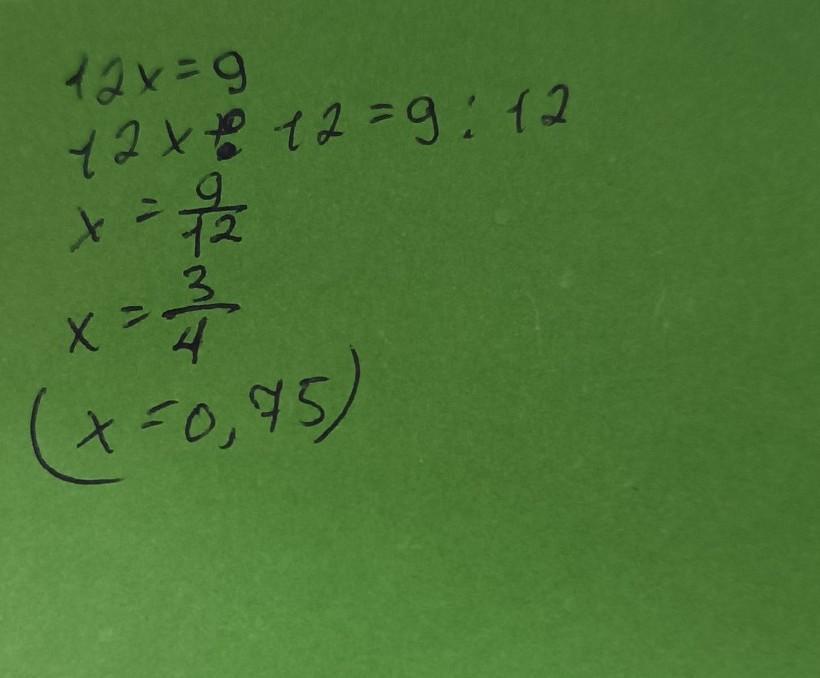 12x=9
12x : 12 = 9 : 12
x = 9/12
x = 3/4
(x=0,75)